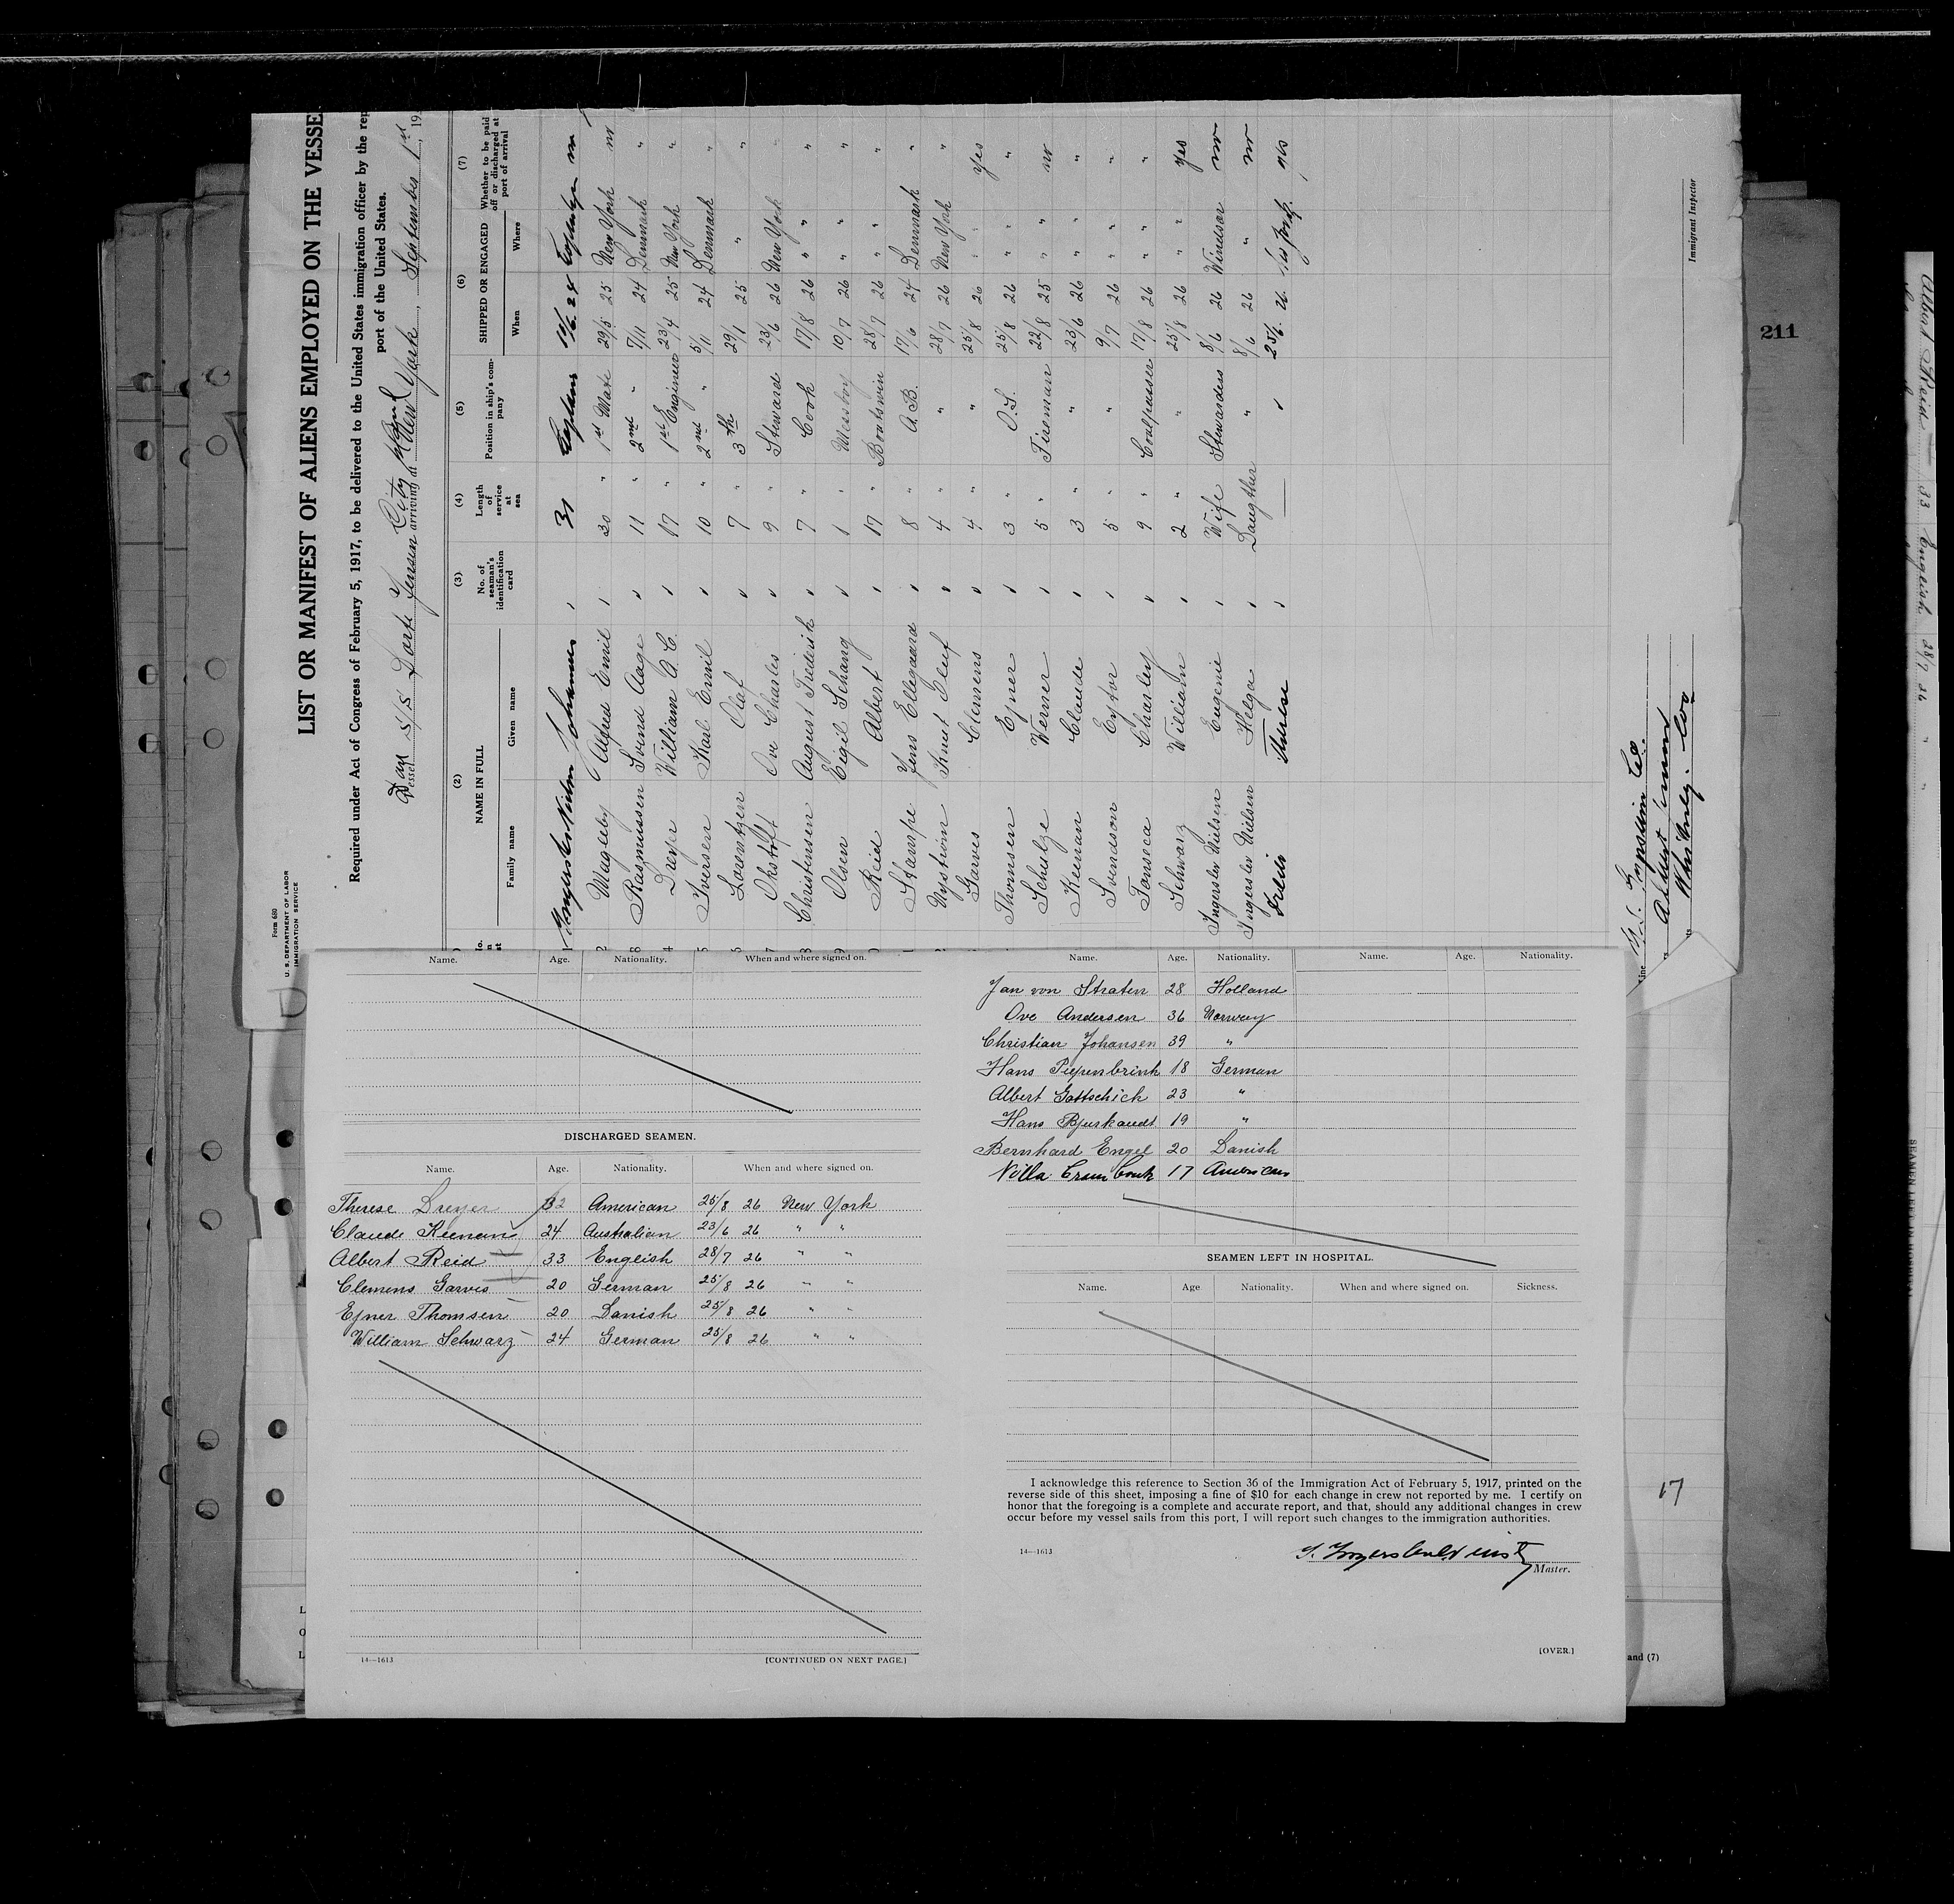 Form 680
U. S. DEPARTMENT OF LABOR
IMMIGRATION SERVICE
LIST OR MANIFEST OF ALIENS EMPLOYED ON THE VESSE
Required under Act of Congress of February 5, 1917, to be delivered to the United States immigration officer by the rep
port of the United States.
Vessel S/S Dorte Jensen arriving at New York, September 1st, 19
(2) (3) (4) (5) (6) (7)
NAME IN FULL
Family name Given name
No. of seaman's identification card
Length of service at sea
Position in ship's company
SHIPPED OR ENGAGED
When Where
Whether to be paid off or discharged at port of arrival
Johannes 31 Captain 24
2 Mageby Alfred Emil 30 " 1st Mate 29/5 25 New York no
3 Rasmussen Svend Aage 11 " 2nd " 7/11 24 Denmark "
4 Dreyer William A. C. 17 " 1st Engineer 23/4 25 New York "
5 Iversen Karl Emil 10 " 2nd " 5/11 24 Denmark "
Lorentzen Olaf 7 " 3th 29/1 25 " "
7 Ove Charles 9 " Steward 23/6 26 New York "
8 Christensen August Frederik 7 " Cook 17/8 26 " "
9 Olsen Eigil Schang 1 " Messboy 10/7 26 " "
Reid Albert 17 " Boatswin 28/7 26 " "
Stampe Jens Ellegaard 8 " A.B. 17/6 24 Denmark "
Nystrøm Knut Oluf 4 " " 28/7 26 New York "
Garves Clemens 4 " " 25/8 26 " yes
Thomsen Ejner 3 " O.S. 25/8 26 " "
Schulze Verner 5 " Fireman 22/8 25 " no
Keenan Claude 3 " " 23/6 26 " "
Svendson Eyfor 5 " " 9/7 26 " "
Fonseca Charley 9 " Coalpasser 17/8 26 " "
Schwarz William 2 " " 25/8 26 " yes
Ingerslev Nielsen Eugenie Wife Stewardess 8/6 26 Windsor no
Ingerslev Nielsen Helga Daugther " 8/6 26 " no
Therese 25/8 26 yes
Immigrant Inspector
211
Name. Age. Nationality. When and where signed on.
DISCHARGED SEAMEN.
Name. Age. Nationality. When and where signed on.
Therese Dreyer 32 American 25/8 26 New York
Claude Keenan 24 Australian 23/6 26 " "
Albert Reid 33 English 28/7 26 " "
Clemens Garves 20 German 25/8 26 " "
Ejner Thomsen 20 Danish 25/8 26 " "
William Schwarz 24 German 25/8 26 " "
14—1613
[CONTINUED ON NEXT PAGE.]
Name. Age. Nationality. Name. Age. Nationality.
Jan von Straten 28 Holland
Ove Andersen 36 Norway
Christian Johansen 39 "
Hans Piepenbrink 18 German
Albert Gottschick 23 "
Hans Bjurkandt 19 "
Bernhard Engel 20 Danish
17 American
SEAMEN LEFT IN HOSPITAL.
Name. Age Nationality. When and where signed on. Sickness.
I acknowledge this reference to Section 36 of the Immigration Act of February 5, 1917, printed on the
reverse side of this sheet, imposing a fine of $10 for each change in crew not reported by me. I certify on
honor that the foregoing is a complete and accurate report, and that, should any additional changes in crew
occur before my vessel sails from this port, I will report such changes to the immigration authorities.
14—1613
Master.
[OVER.]
17
and (7)
Albert Reid 33 English 28/7 26 " "
SEAMEN LEFT IN HOSPITAL